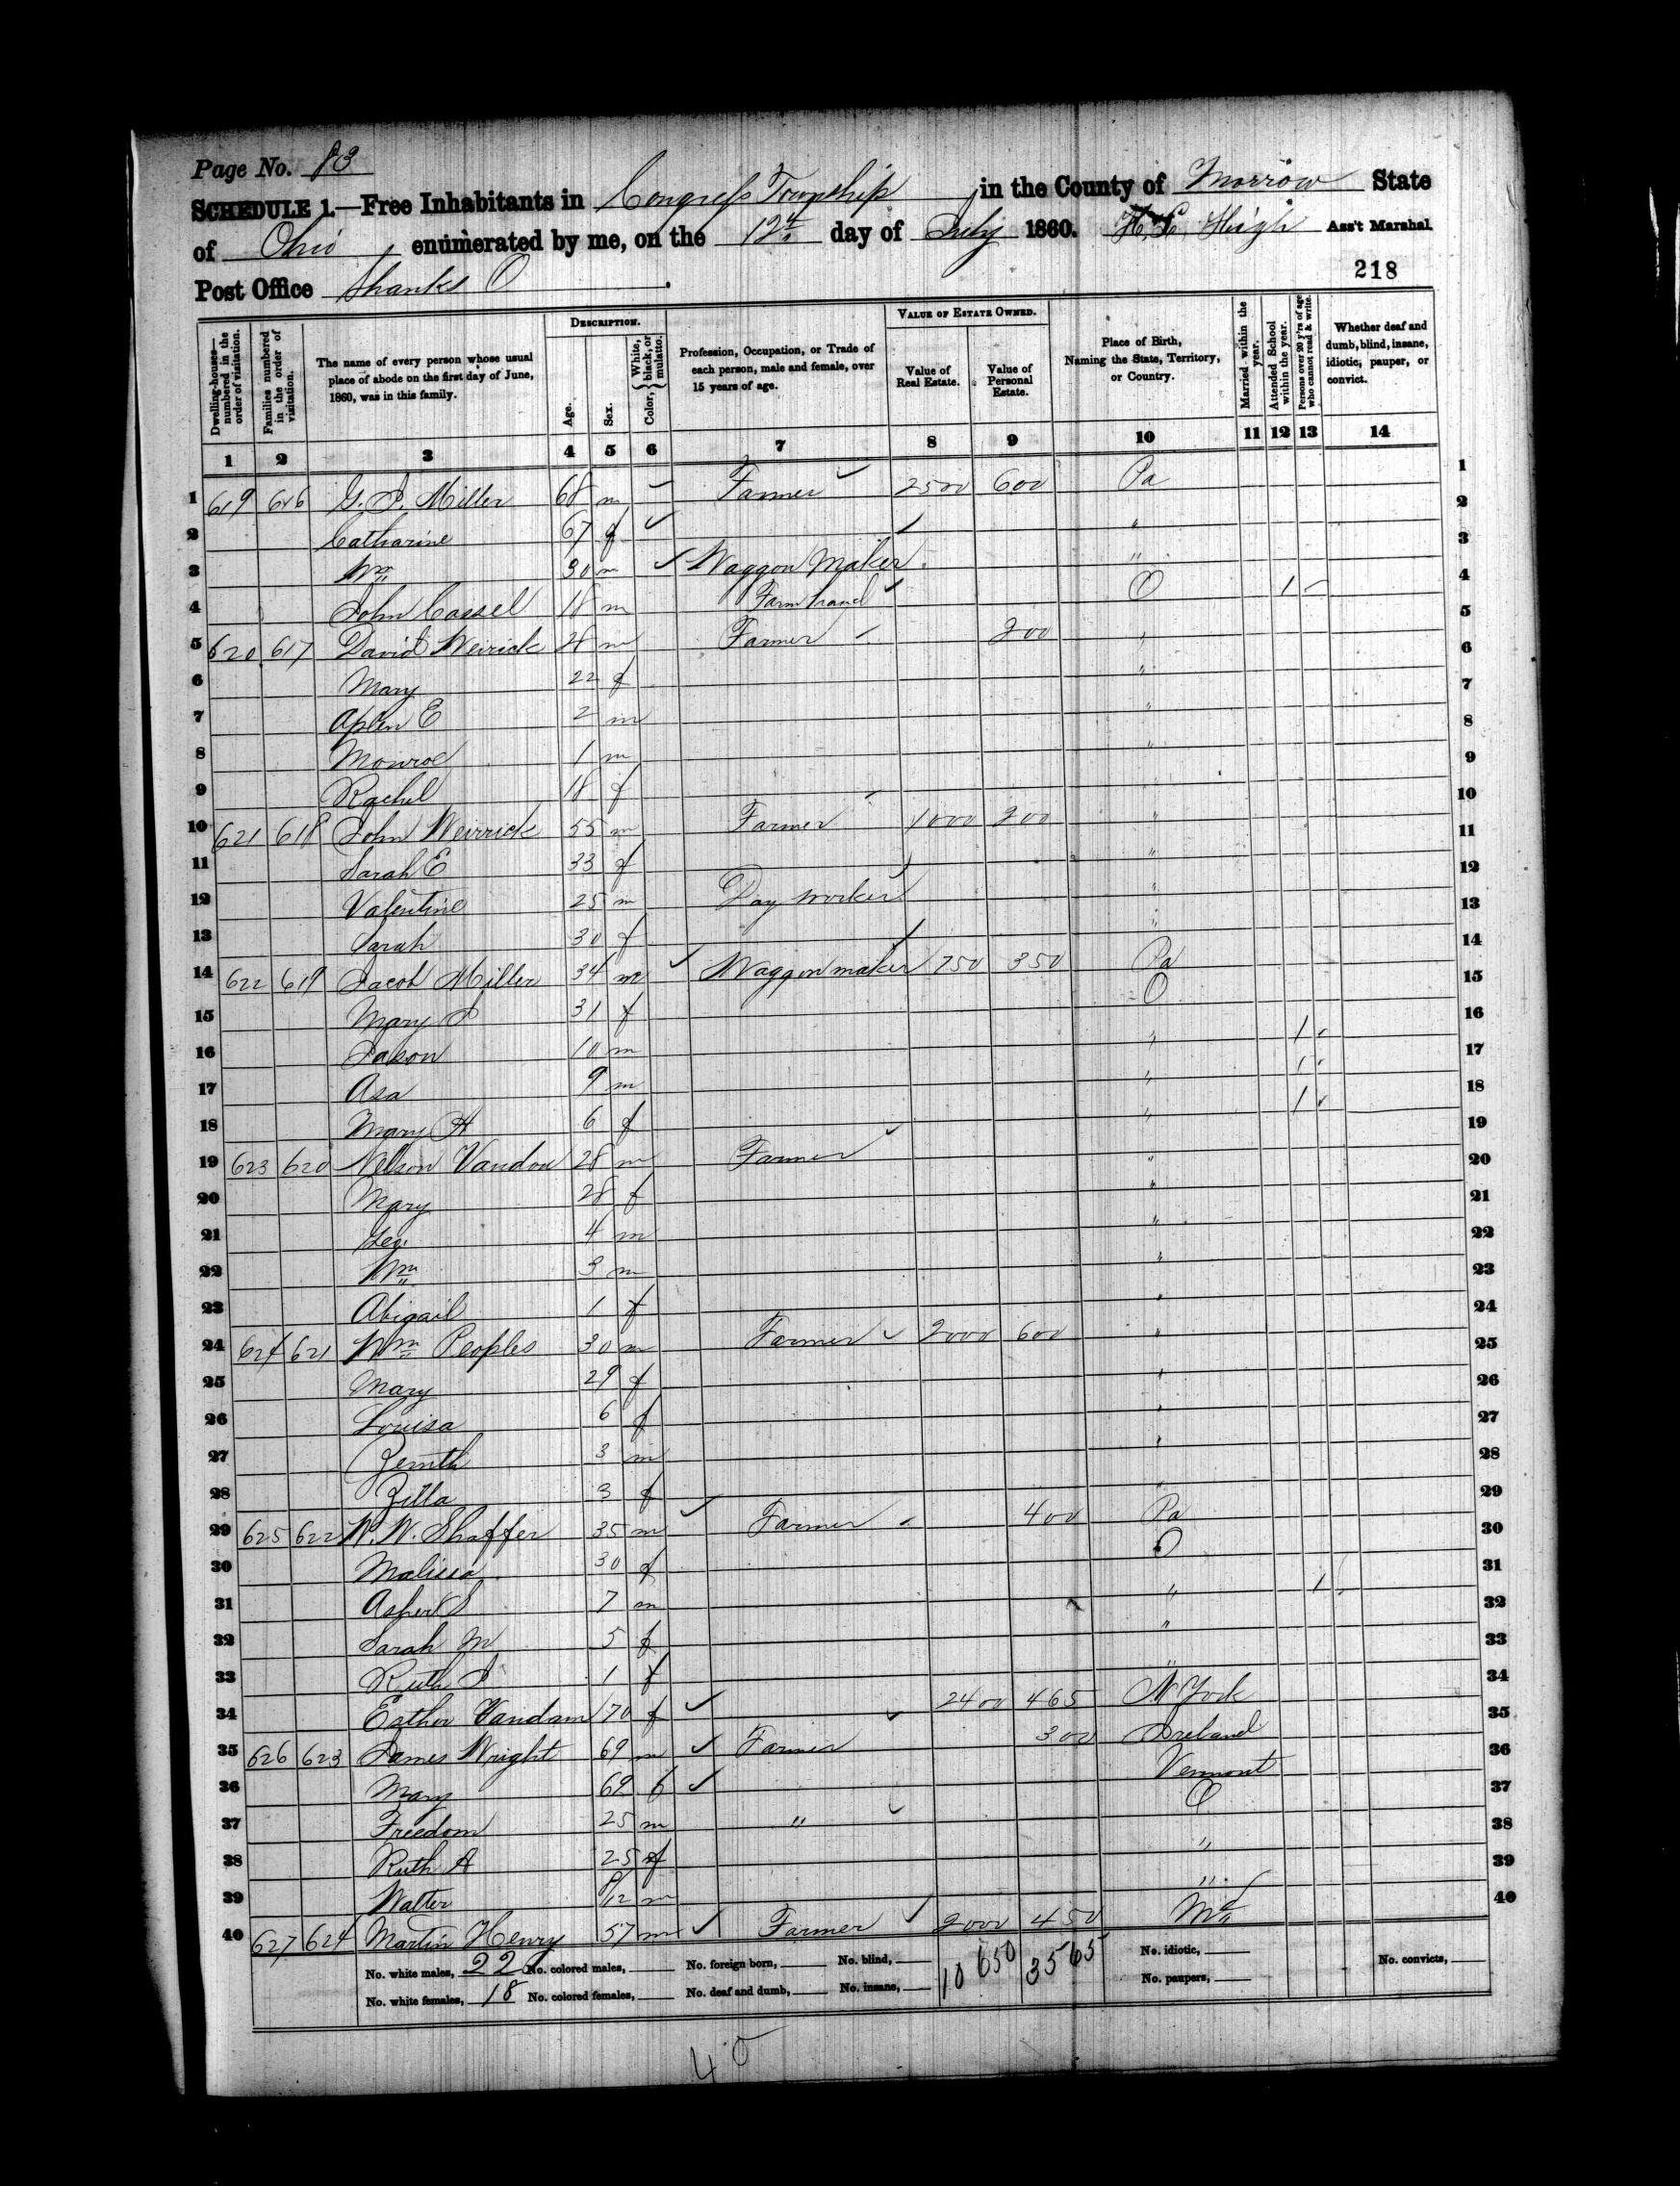 Page No. 83
SCHEDULE 1.—Free Inhabitants in Congress Township in the County of Morrow State
of Ohio enumerated by me, on the 12th day of July 1860. Ass't Marshal.
218
Post Office Shanks O
Dwelling-houses—numbered in the order of visitation. Families numbered in the order of visitation. The name of every person whose usual place of abode on the first day of June, 1860, was in this family. DESCRIPTION. Age. Sex. Color, { White, black, or mulatto. Profession, Occupation, or Trade of each person, male and female, over 15 years of age. VALUE OF ESTATE OWNED. Value of Real Estate. Value of Personal Estate. Place of Birth, Naming the State, Territory, or Country. Married within the year. Attended School within the year. Persons over 20 y'rs of age who cannot read & write. Whether deaf and dumb, blind, insane, idiotic, pauper, or convict.
1 2 3 4 5 6 7 8 9 10 11 12 13 14
1 619 616 Miller 68 m Farmer 2500 600 Pa 1
2 Catharine 67 f " 2
3 Wm 30 m Waggon Maker " 3
4 John Cassel 18 m Farm hand O 1 4
5 620 617 David Weirick 28 m Farmer 200 " 5
6 Mary 22 f " 6
7 E 2 m " 7
8 Monroe 1 m " 8
9 Rachel 18 f 9
10 621 618 John Weirrick 55 m Farmer 1000 200 " 10
11 Sarah E 33 f " 11
12 Valentine 25 m Day worker " 12
13 Sarah 30 f " 13
14 622 619 Jacob Miller 34 m Waggon maker 750 350 Pa 14
15 Mary J 31 f O 15
16 Jason 10 m " 1 16
17 Asa 9 m " 1 17
18 Mary A 6 f " 1 18
19 623 620 Nelson 28 m Farmer " 19
20 Mary 28 f " 20
21 Geo. 4 m " 21
22 Wm 3 m " 22
23 Abigail 1 f " 23
24 624 621 Wm Peoples 30 m Farmer 2000 600 " 24
25 Mary 29 f " 25
26 Louisa 6 f " 26
27 Zenith 3 m " 27
28 Zilla 3 f " 28
29 625 622 W. W. Shaffer 35 m Farmer 400 Pa 29
30 Malissa 30 f O 30
31 S 7 m " 1 31
32 Sarah M 5 f " 32
33 Ruth J 1 f " 33
34 Esther 70 f 2400 465 N York 34
35 626 623 James Wright 69 m Farmer 300 Ireland 35
36 Mary 69 f Vermont 36
37 Freedom 25 m " O 37
38 Ruth A 25 f " 38
39 Walter 8/12 m " 39
40 627 624 Martin Henry 57 m Farmer 2000 450 Md 40
No. white males, 22 No. colored males, No. foreign born, No. blind, 10650 3565 No. idiotic, No. convicts,
No. white females, 18 No. colored females, No. deaf and dumb, No. insane, No. paupers,
40